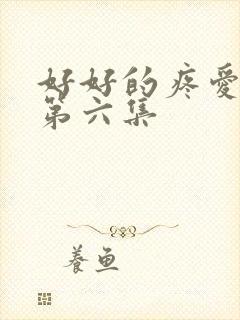 好好的疼愛
第六集
養魚